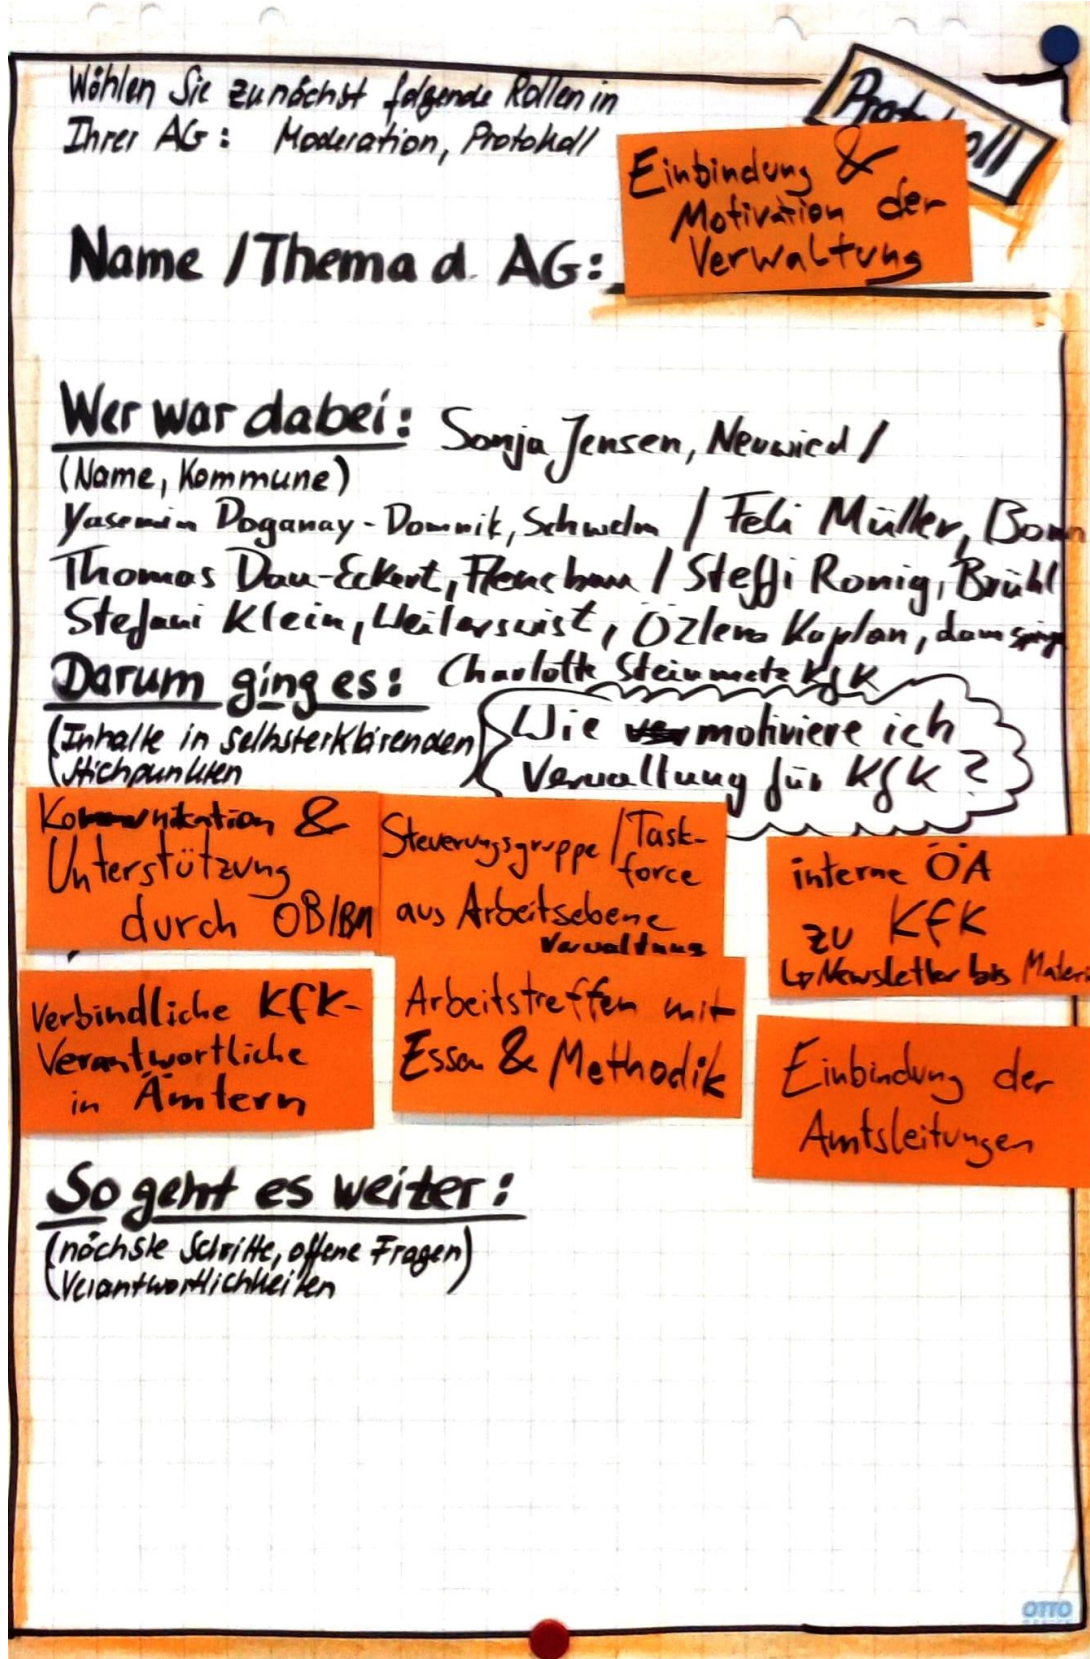 Wählen Sie zunächst folgende Rollen in
Ihrer AG: Moderation, Protokoll
Protokoll
Einbindung &
Motivation der
Verwaltung
Name / Thema d. AG:
Wer war dabei: Sonja Jensen, Neuwied /
(Name, Kommune)
Yasemin Doganay-Domnik, Schwelm / Feli Müller, Bonn
Thomas Dau-Eckert, / Steffi Ronig, Brühl
Stefani Klein, Weilerswist, Özlem Kaplan,
Charlotte Steinmetz KfK
Darum ging es:
(Inhalte in selbsterklärenden
Stichpunkten
Wie motiviere ich
Verwaltung für KfK?
Kommunikation &
Unterstützung
durch OB/BM
Steuerungsgruppe / Task-
force
aus Arbeitsebene
Verwaltung
interne ÖA
zu KfK
↳ Newsletter bis Materi
Verbindliche KfK-
Verantwortliche
in Ämtern
Arbeitstreffen mit
Essen & Methodik
Einbindung der
Amtsleitungen
So geht es weiter:
(nächste Schritte, offene Fragen)
(Verantwortlichkeiten
OTTO